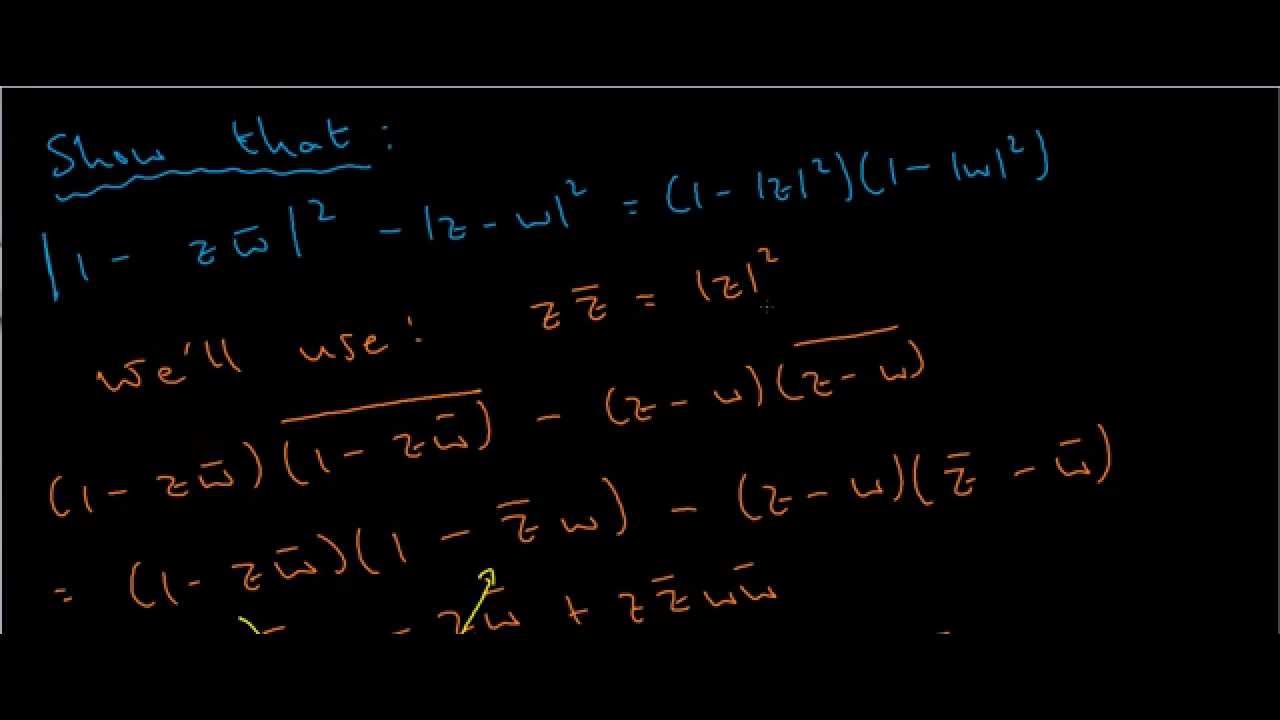 Show that:
|1 - z w̄|² - |z - w|² = (1 - |z|²)(1 - |w|²)
We'll use: z z̄ = |z|²
(1 - z w̄)(\overline{1 - z w̄}) - (z - w)(\overline{z - w})
= (1 - z w̄)(1 - z̄ w) - (z - w)(z̄ - w̄)
- z w̄ + z z̄ w w̄